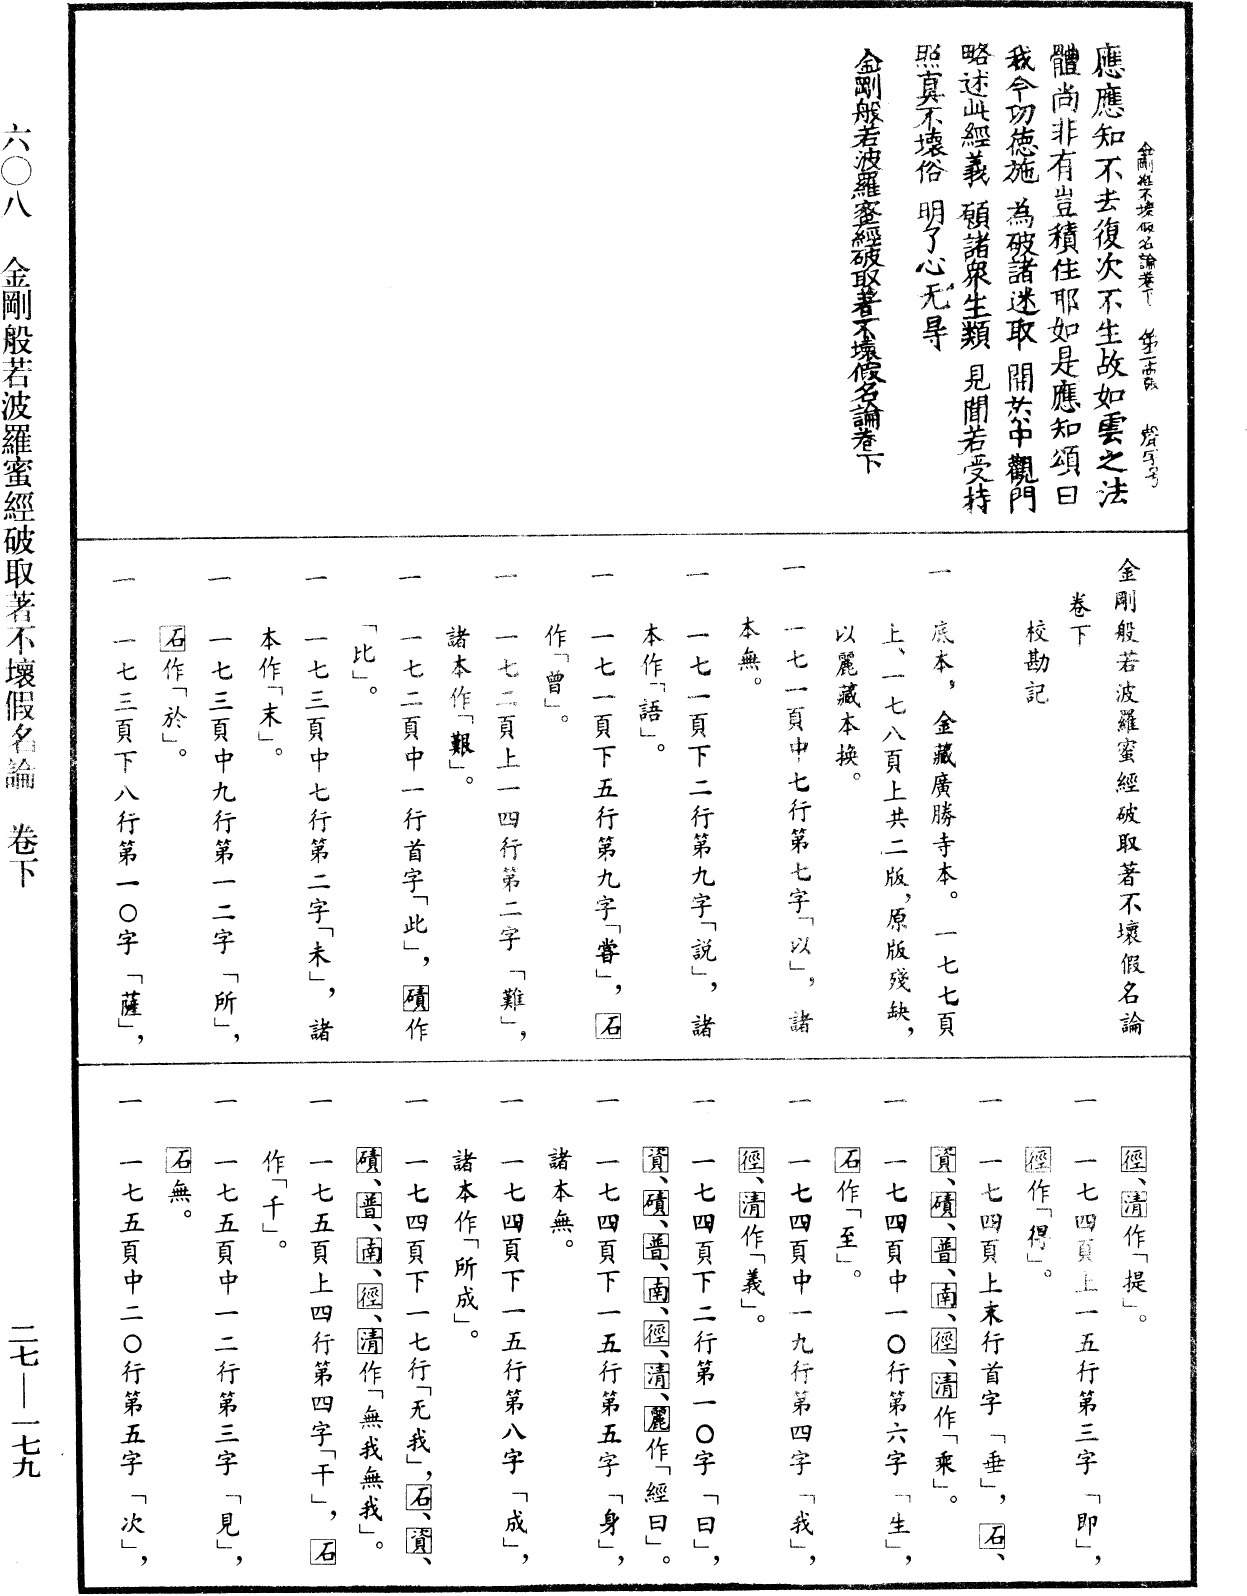 金剛經不壞假名論卷下　第二十張　聲字号
應應知不去復次不生故如雲之法
體尚非有豈積住耶如是應知頌曰
我今功徳施　為破諸迷取　開茲中觀門
略述此經義　願諸衆生類　見聞若受持
照真不壞俗　明了心无㝵
金剛般若波羅蜜經破取著不壞假名論卷下
金剛般若波羅蜜經破取著不壞假名論
卷下
校勘記
一　底本，金藏廣勝寺本。一七七頁
上、一七八頁上共二版，原版殘缺，
以麗藏本換。
一　一七一頁中七行第七字「以」，諸
本無。
一　一七一頁下二行第九字「説」，諸
本作「語」。
一　一七一頁下五行第九字「嘗」，石
作「曾」。
一　一七二頁上一四行第二字「難」，
諸本作「艱」。
一　一七二頁中一行首字「此」，磧作
「比」。
一　一七三頁中七行第二字「未」，諸
本作「末」。
一　一七三頁中九行第一二字「所」，
石作「於」。
一　一七三頁下八行第一〇字「薩」，
徑、清作「提」。
一　一七四頁上一五行第三字「即」，
徑作「得」。
一　一七四頁上末行首字「垂」，石、
資、磧、普、南、徑、清作「乘」。
一　一七四頁中一〇行第六字「生」，
石作「至」。
一　一七四頁中一九行第四字「我」，
徑、清作「義」。
一　一七四頁下二行第一〇字「曰」，
資、磧、普、南、徑、清、麗作「經曰」。
一　一七四頁下一五行第五字「身」，
諸本無。
一　一七四頁下一五行第八字「成」，
諸本作「所成」。
一　一七四頁下一七行「无我」，石、資、
磧、普、南、徑、清作「無我無我」。
一　一七五頁上四行第四字「干」，石
作「千」。
一　一七五頁中一二行第三字「見」，
石無。
一　一七五頁中二〇行第五字「次」，
六〇八　金剛般若波羅蜜經破取著不壞假名論　卷下
二七—一七九